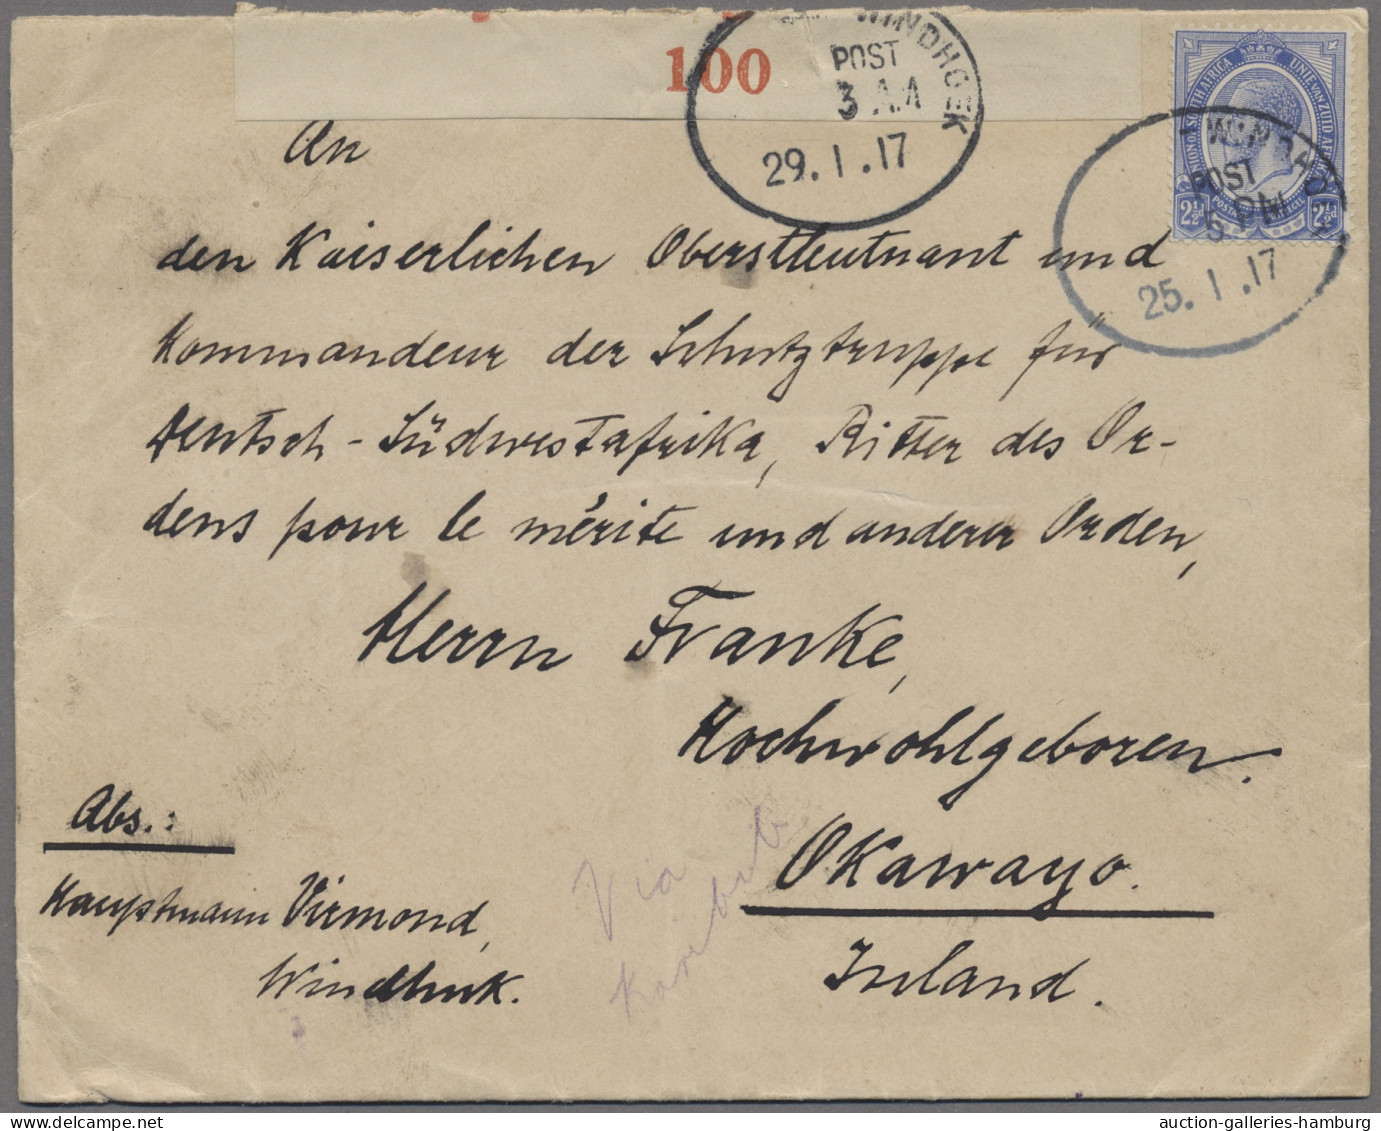 100
WINDHOEK
POST
3 AM
29.I.17
UNION OF SOUTH AFRICA UNIE VAN ZUID AFRIKA
2½d 2½d
POST
5 PM
25.I.17
An
den Kaiserlichen Oberstleutnant und
Kommandeur der Schutztruppe für
Deutsch-Südwestafrika, Ritter des Or-
dens pour le mérite und anderer Orden,
Herrn Franke,
Hochwohlgeboren.
Okawayo.
Inland.
Abs.:
Hauptmann Virmond,
Windhuk.
Via
Karibib
auction-galleries-hamburg.com